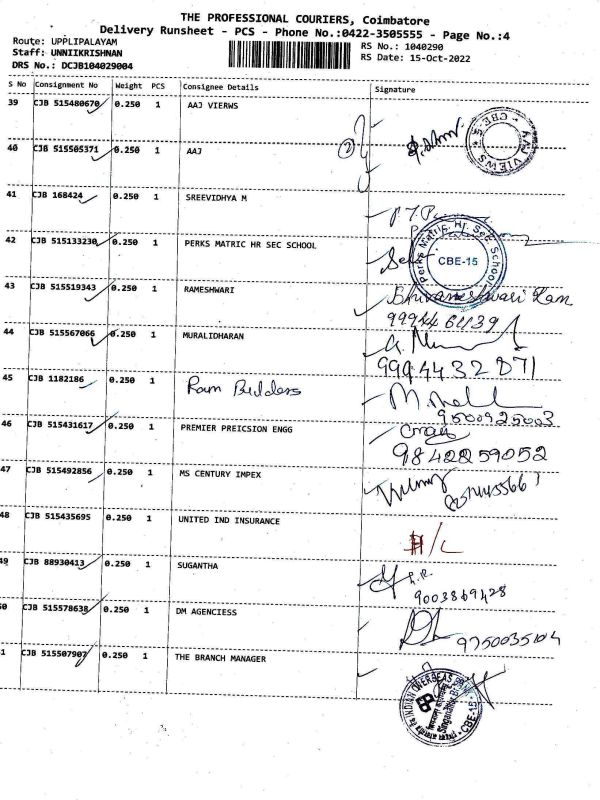 THE PROFESSIONAL COURIERS, Coimbatore
Delivery Runsheet - PCS - Phone No.:0422-3505555 - Page No.:4
Route: UPPLIPALAYAM
Staff: UNNIIKRISHNAN
DRS No.: DCJB104029004
RS No.: 1040290
RS Date: 15-Oct-2022
S No Consignment No Weight PCS Consignee Details Signature
39 CJB 515480670 0.250 1 AAJ VIERWS
AAJ VIEWS * CBE-5 *
40 CJB 515505371 0.250 1 AAJ
2
41 CJB 168424 0.250 1 SREEVIDHYA M
42 CJB 515133230 0.250 1 PERKS MATRIC HR SEC SCHOOL
Perks Matric. Hr. Sec. School
CBE-15
43 CJB 515519343 0.250 1 RAMESHWARI
Bhuvaneshwari Ram
9994464139
44 CJB 515567066 0.250 1 MURALIDHARAN
9994432871
45 CJB 1182186 0.250 1 Ram Bulders
9500925003
46 CJB 515431617 0.250 1 PREMIER PREICSION ENGG
9842259052
47 CJB 515492856 0.250 1 MS CENTURY IMPEX
48 CJB 515435695 0.250 1 UNITED IND INSURANCE
H/C
49 CJB 88930413 0.250 1 SUGANTHA
9003869428
50 CJB 515578638 0.250 1 DM AGENCIESS
9750035104
51 CJB 515507907 0.250 1 THE BRANCH MANAGER
INDIAN OVERSEAS BANK
CBE-15